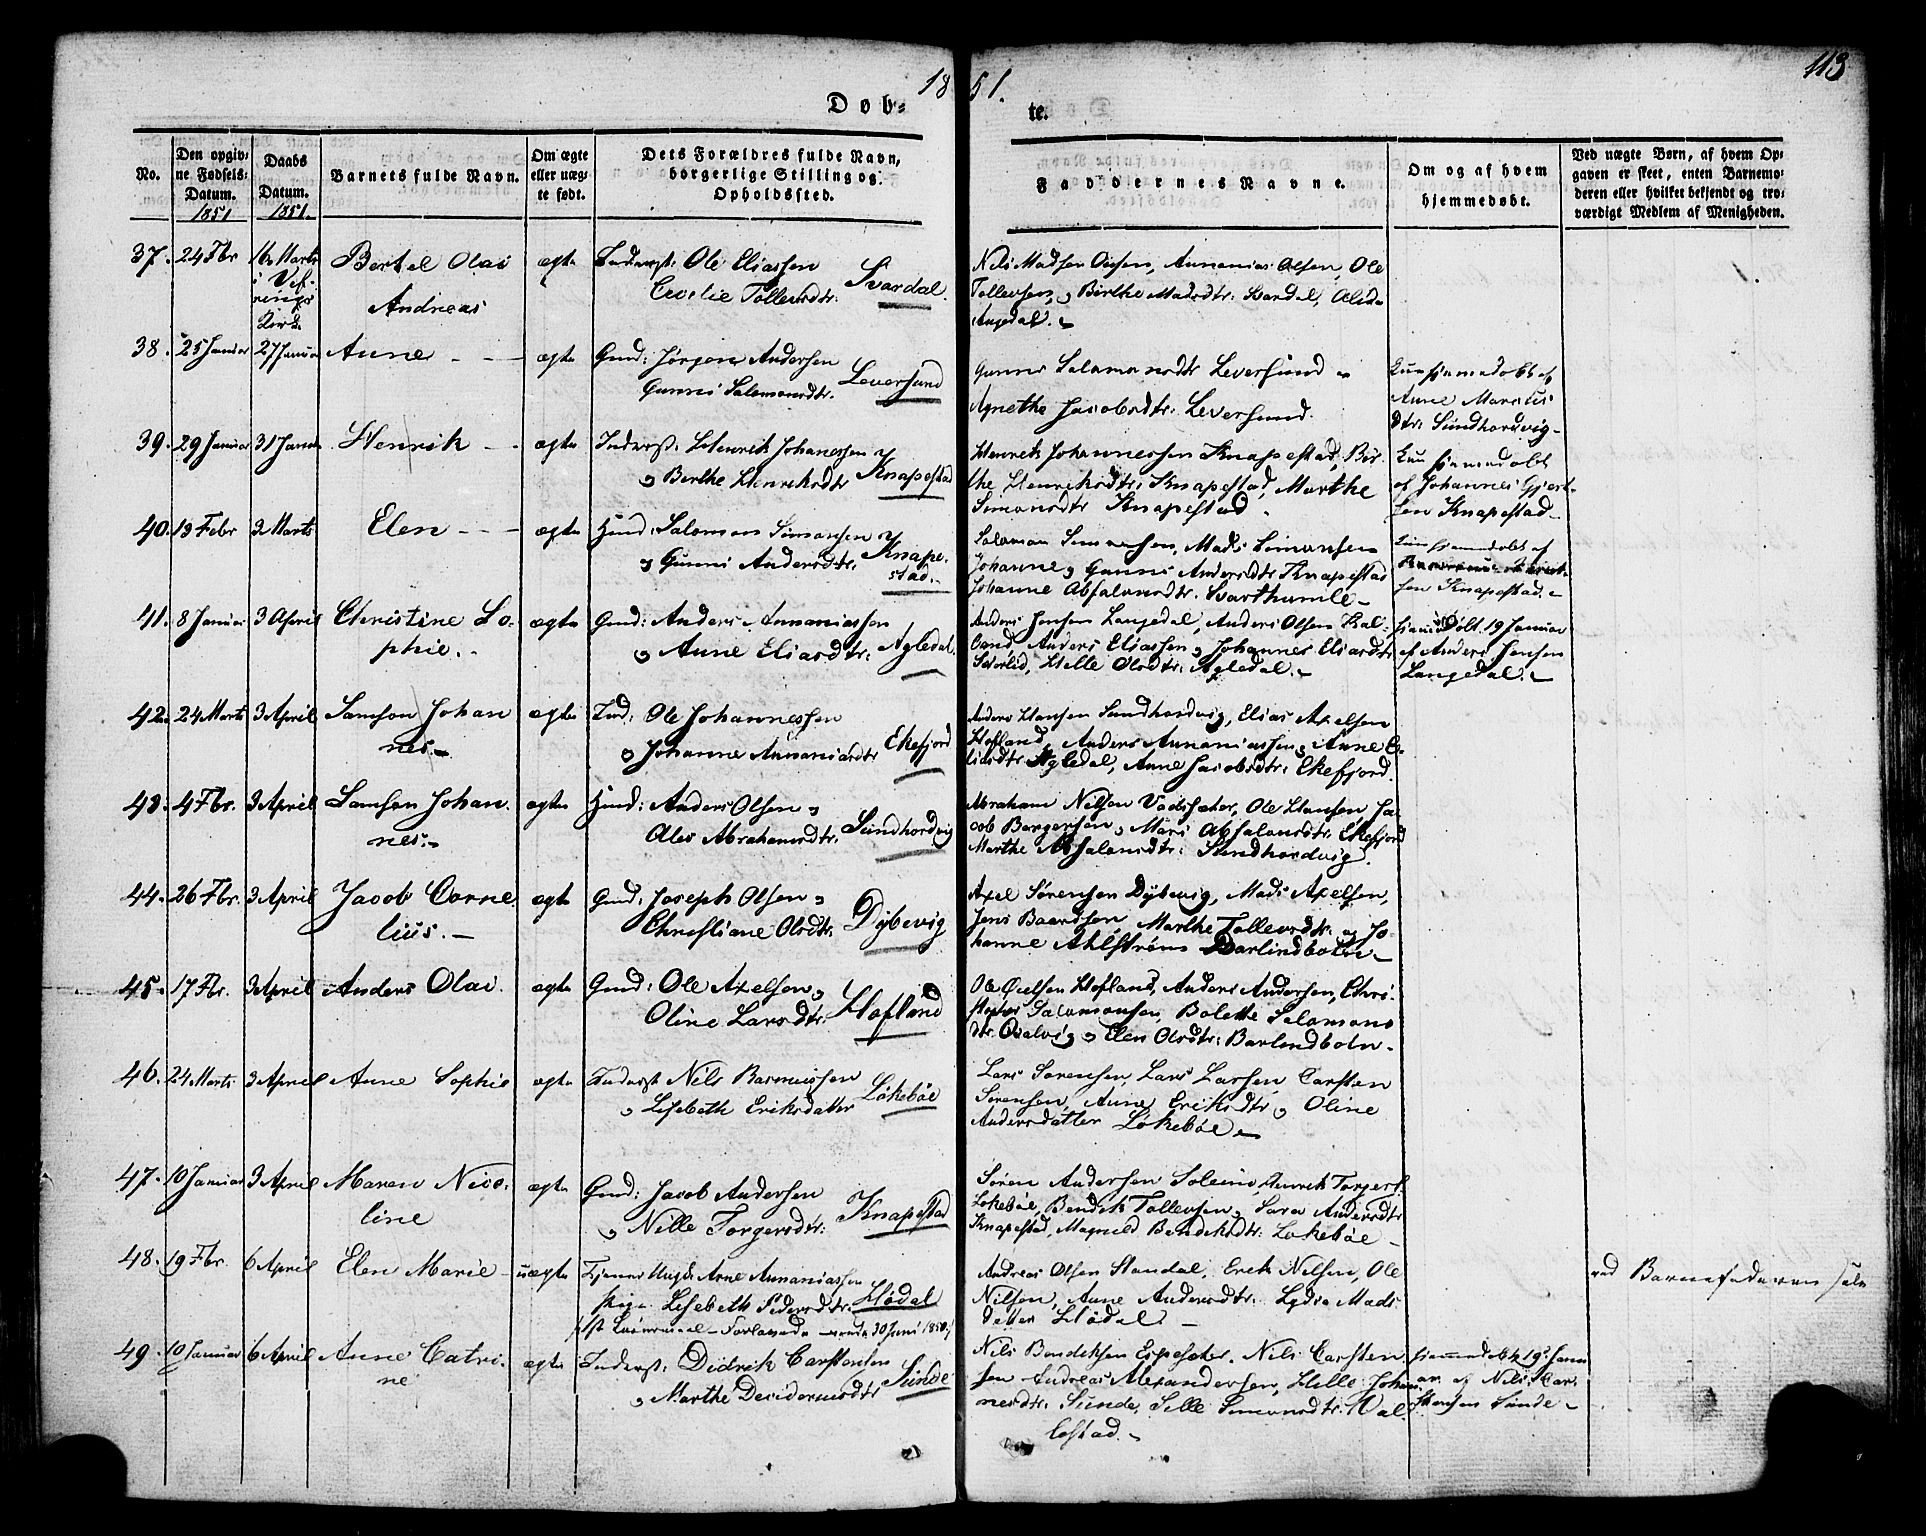 1851.
113
Døb-
te.
No.
Den opgiv-
ne Fødsels-
Datum.
1851
Daabs
Datum.
1851.
Barnets fulde Navn.
Om ægte
eller uæg-
te født.
Dets Forældres fulde Navn,
borgerlige Stilling og
Opholdssted.
Faddernes Navne.
Om og af hvem
hjemmedøbt.
Ved uægte Børn, af hvem Op-
gaven er skeet, enten Barnemo-
deren eller hvilket bekjendt og tro-
værdigt Medlem af Menigheden.
37. 24 Fbr 16 Marts Bertel Olai ægte Inderst: Ole Eliassen
i Vef-
rings
Kirke
Andreas Cecilie Tollevsdtr: Svardal.
Nils Madsen Ousen, Annanias Olsen, Ole
Tollevsen, og Birthe Madsdtr: Svardal, Alida
Angedal.
38. 25 Januar 27 Januar Anne ægte Gmd: Jørgen Andersen
Gunni Salamonsdtr. Leversund
Gunni Salamonsdtr Leversund og
Agnethe Jacobsdtr: Leversund.
Kun hjemmedøbt af
Anne
dtr: Sundhordvig
39. 29 Januar 31 Januar Henrik ægte Inderst: Henrik Johanessen
og Birthe Henriksdtr Knapestad
Henrik Johannessen Knapestad, Bir-
the Henriksdtr: Knapestad, Marthe
Simonsdtr Knapestad
Kun hjemmedøbt
af Johannes Gjert-
sen Knapestad
40. 13 Febr 2 Marts Elen ægte Huusmd: Salomon Simonsen
og Gunni Andersdtr. Knape-
stad.
Salamon Simonsen, Mads Simonsen
Johanne og Gunni Andersdtr Knapestad
Johanne Absalonsdtr. Svarthumle
Kun hjemmedøbt af
sen Knapestad.
41. 8 Januar 3 April Christine So- ægte Gmd: Anders Annaniassen
phie. og Anne Eliasdtr: Agledal.
Anders Jensen Langedal, Anders Olsen
Anders Eliassen og Johannes Eliasdtr
Hille Olsdtr: Agledal.
hjemmedøbt 19 Januar
af Anders Jensen
Langedal.
42. 24 Marts 3 April Samson Johan ægte Ind: Ole Johannessen
nes. og Johanne Annaniasdtr Ekefjord
Anders Hansen Sundhordvig, Elias Axelsen
Hofland, Anders Annaniassen og Anne E-
liasdtr Agledal, Anne Jacobsdtr: Ekefjord.
43. 4 Fbr. 3 April Samson Johan ægte Huusmd: Anders Olsen og
nes. Ales Abrahamsdtr: Sundhordvig
Abraham Nilsen Vadsæter, Ole Hansen Ja-
cob Børgersen og Mari Absalonsdtr: Ekefjord
Marthe Absalonsdtr: Sundhordvig.
44. 26 Fbr. 3 April Jacob Corne- ægte Gmd: Joseph Olsen og
lius. Christiane Olsdtr: Dybevig
Axel Sørensen Dybevig, Mads Axelsen,
Jens Baardsen, Marthe Tollevsdtr. og Jo-
hanne Ahlstrøm Barlindbotn
45. 17 Fbr. 3 April Anders Olai. ægte Gmd: Ole Axelsen og
Oline Larsdtr: Hofland
Ole Hofland, Anders Andersen, Chri-
stopher Salamonsen, Bolette Salamons
dtr. Qvalvig og Elen Olsdtr: Barlindbotn.
46. 24 Marts 3 April Anne Sophie ægte Inderst Nils Rasmussen
og Lisebeth Eriksdatter Løkebøe
Lars Sørensen, Lars Larsen, Carsten
Sørensen, Anne Eriksdtr og Oline
Andersdatter Løkebøe
47. 10 Januar 3 April Maren Nico- ægte Gmd: Jacob Andersen
line og Nille Torgersdtr: Knapestad
Søren Andersen Soleim, Henrik Torgers.
Løkebøe, Bendik Tollevsen, Sara Andersdtr
Knapestad, Magnild Bendiksdtr: Løkebøe
48. 19 Fbr. 6 April Elen Marie uægte Tjener Ungk. Arne Annaniassen
Pige Lisebeth Pedersdtr: Hødal
30 Juni 1850
Andreas Olsen Standal, Erik Nilsen, Ole
Nilsen, Anne Andersdtr. Lydia Mads
datter Hødal.
ved Barnefaderen selv
49. 10 Januar 6 April Anne Catri- ægte Inderst: Didrik Carstensen
ne og Marthe Desideriusdtr Sunde
Nils Bendiksen Espesæter, Nils Carsten
sen Andreas Alexandersen, Hille Johan-
nesdtr: Sunde, Sille Simonsdtr: Val-
lestad.
hjemmedøbt 19de Janu
ar. af Nils Car-
stensen Sunde